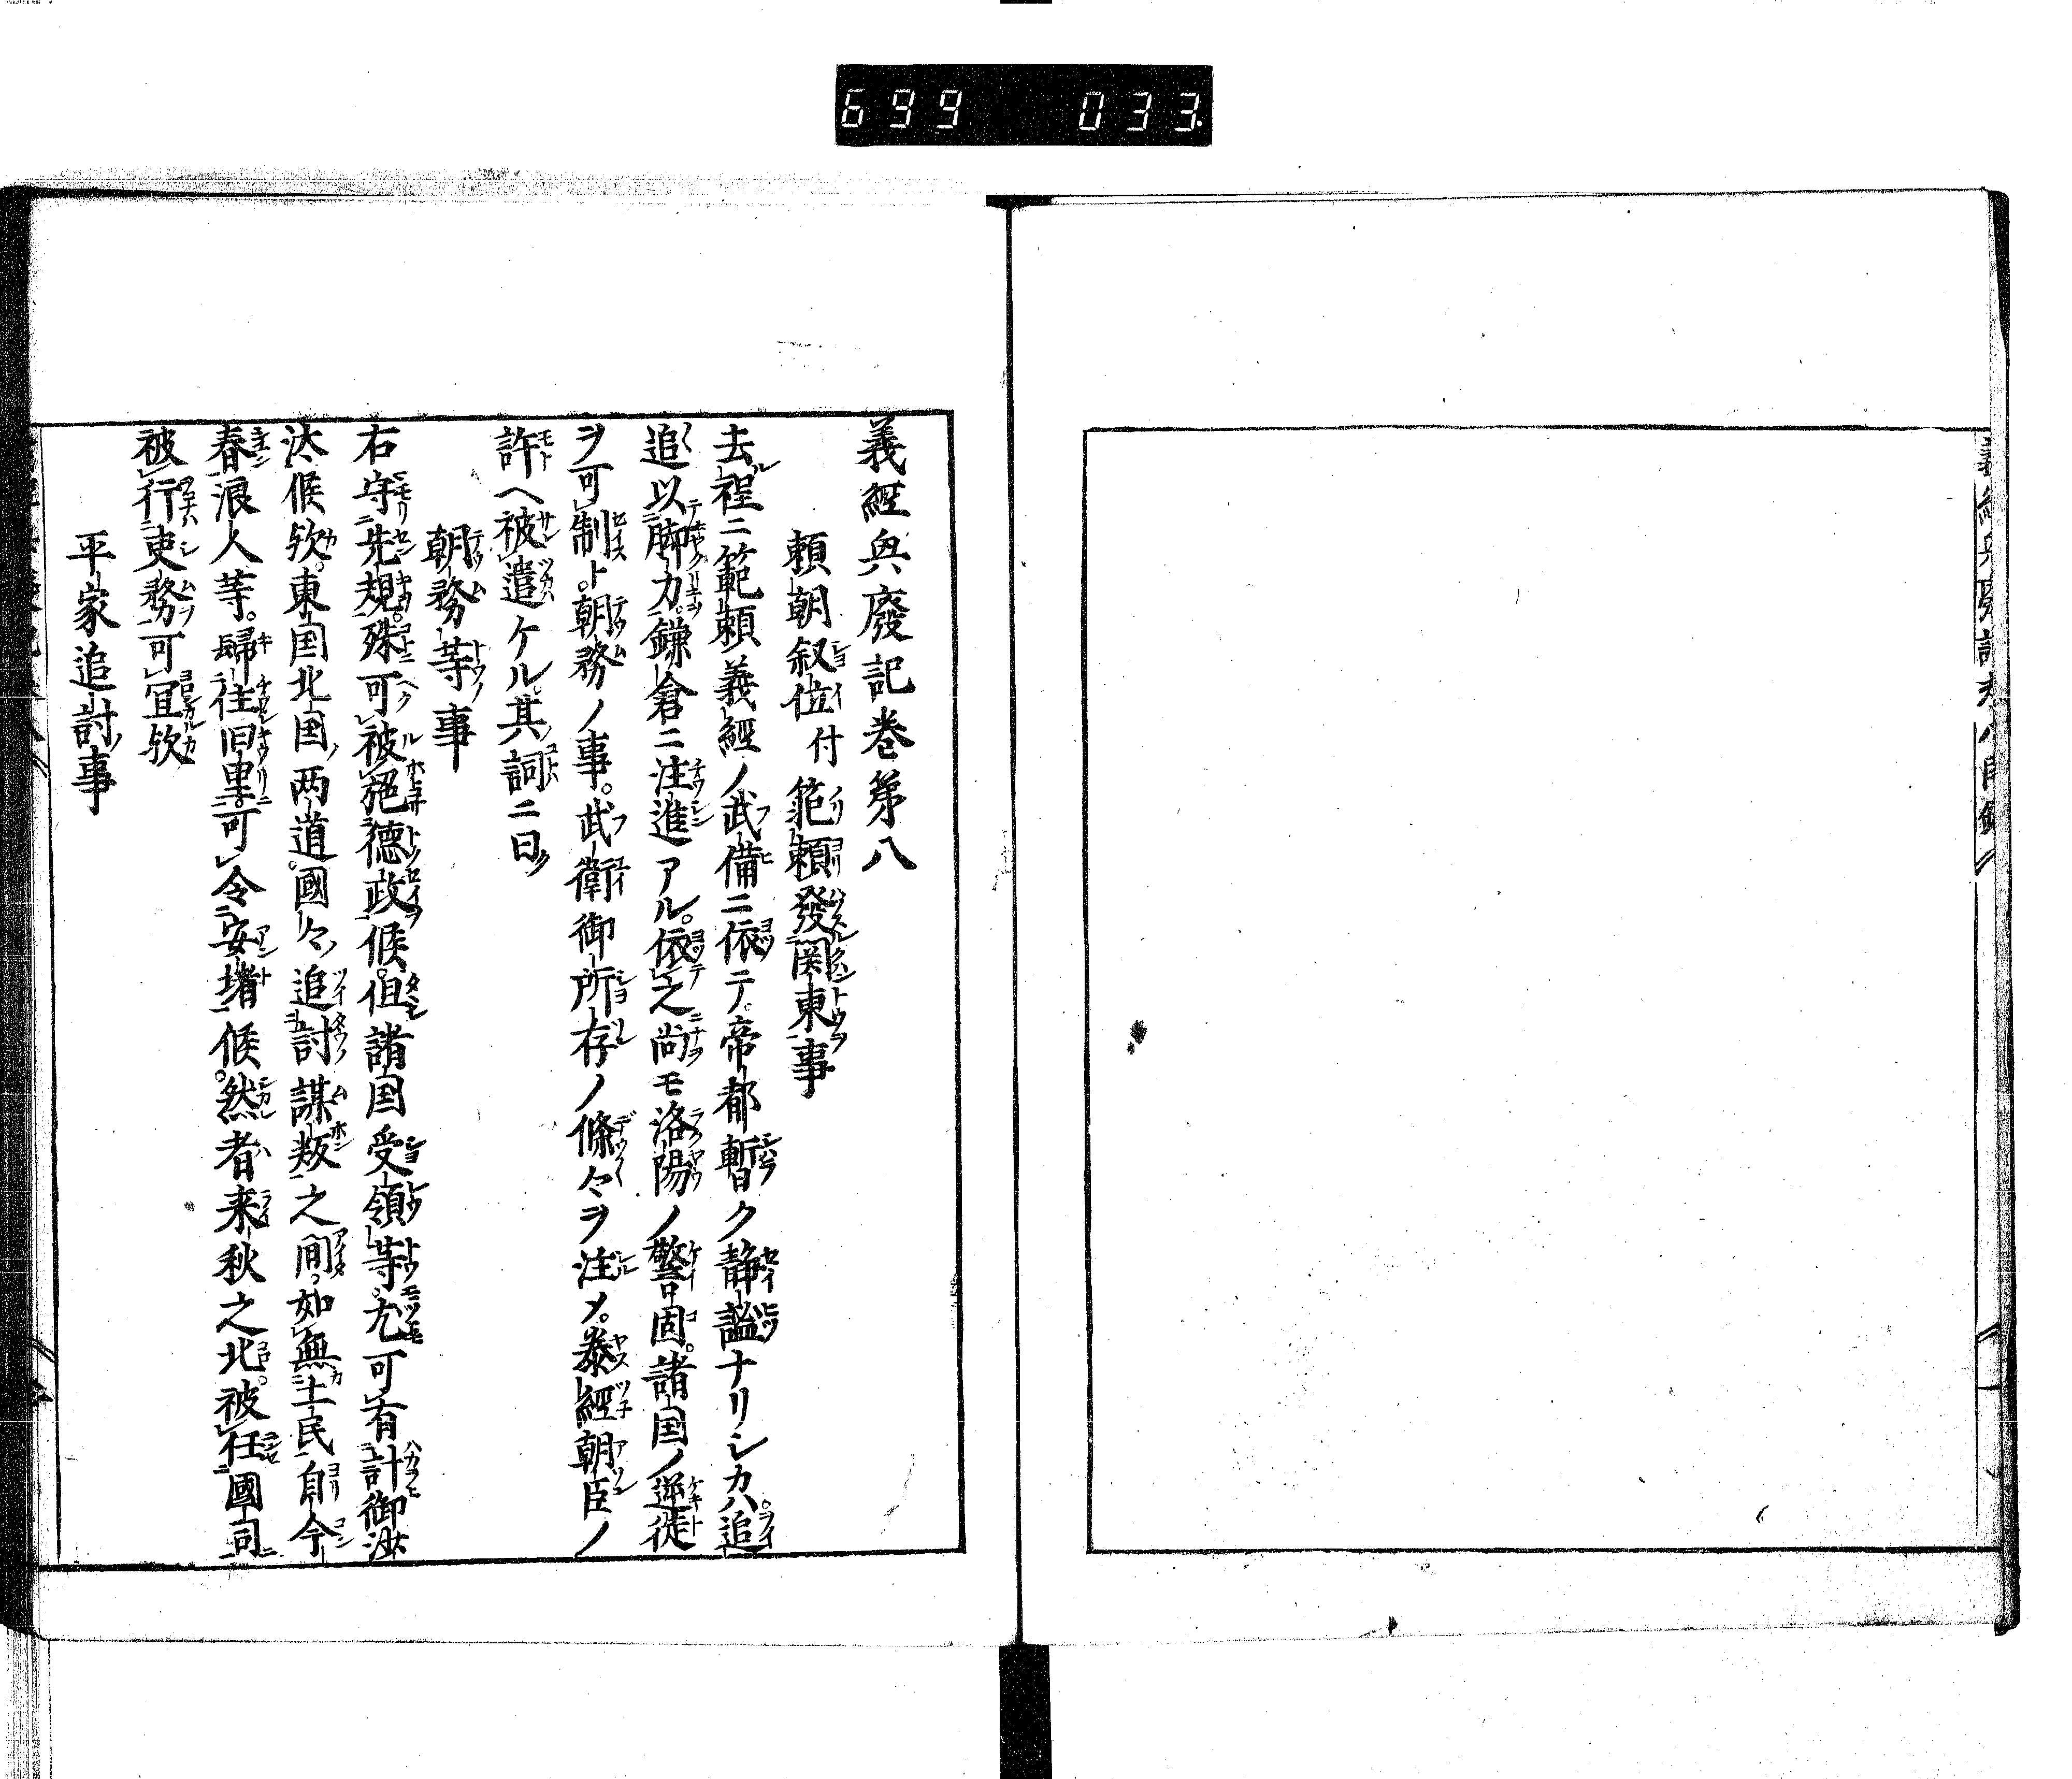 699 033
義經興廢記巻第八
頼朝叙位付範頼發関東事
去程ニ範頼義經ノ武備ニ依テ。帝都暫ク静謐ナリシカハ追
追以脚力。鎌倉ニ注進アル。依之尚モ洛陽ノ警固。諸国ノ逆徒
ヲ可制ト。朝務ノ事。武衛御所存ノ條々ヲ注メ。泰經朝臣ノ
許ヘ被遣ケル。其詞ニ曰
朝務等事
右守先規。殊可被施徳政候。但諸国受領等。尤可有計御沙
汰候欤。東国北国両道。國々追討謀叛之間。如無土民自今
春浪人等。歸往旧里。可令安堵候。然者来秋之比。被任國司
被行吏務可宜欤
平家追討事